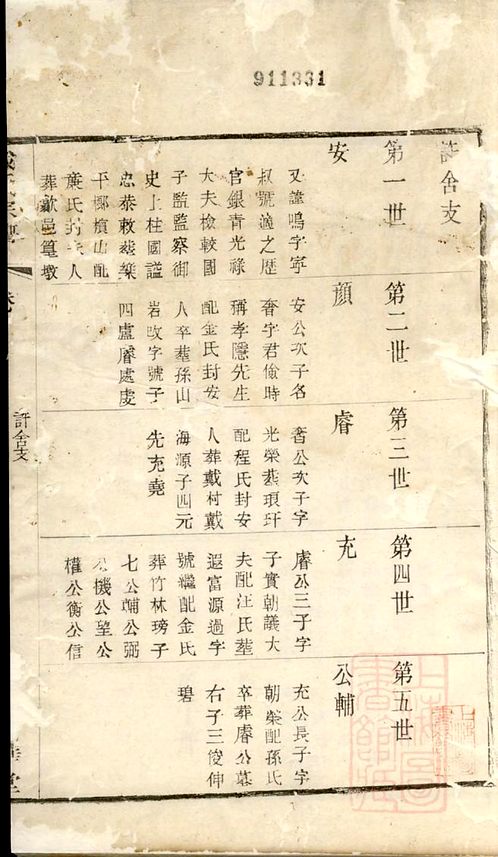 911331
許舍支
第一世
安
又諱鳴字寧
叔號適之歷
官銀青光祿
大夫檢較國
子監監察御
史上柱國諡
忠恭敕葬樂
平鄉演山配
葉氏封夫人
葬歙邑篁墩
第二世
顏
安公次子名
奢字君儉時
稱孝隱先生
配金氏封安
人卒葬孫山
岩改字號子
四盧睿處虔
第三世
睿
奢公次子字
光榮葬琅玕
配程氏封安
人葬戴村戴
海源子四元
先充堯
第四世
充
睿公三子字
子實朝議大
夫配汪氏葬
遐富源過字
號繼配金氏
葬竹林塝子
七公輔公弼
公機公望公
權公衡公信
第五世
公輔
充公長子字
朝榮配孫氏
卒葬睿公墓
右子三俊伸
碧
許舍支